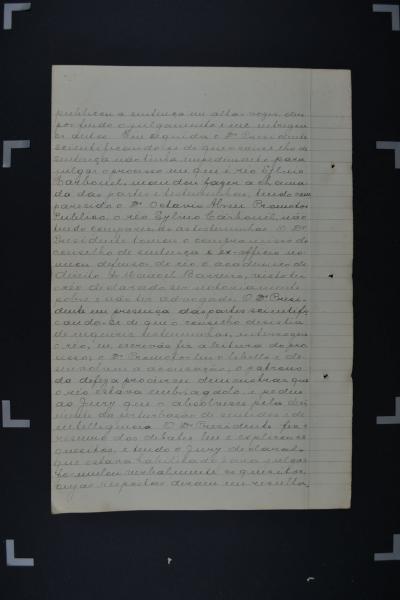 publicou a sentença em altas vozes, dan
do por findo o julgamento e me entregou
os autos. Em seguida o Dr Presidente
scientificando-se de que o conselho de
sentença não tinha impedimento para
julgar o processo em que é réo Sylvio
Carbonel, mandou fazer a chama
da das partes e testemunhas, tendo com
parecido o Dr Octavio Promotor
Publico, o réo Sylvio Carbonel, não
tendo comparecido as testemunhas. O Dr
Presidente tomou o compromisso do
conselho de sentença e ex-officio no
meou defensor do réo o academico de
direito Manoel Barreiro, visto ter
o réo declarado ser
pobre e não ter advogado. O Dr Presi-
dente em presença das partes scientifi
cando-se de que o conselho desistia
de inquirir testemunhas, interrogou
o réo, eu, escrivão fiz a leitura do pro
cesso, o Dr Promotor leu o libello e de-
senvolveu a accusação, o patrono
da defeza procurou demonstrar que
o réo estava embriagado e pediu
ao Jury que o absolvesse pela diri
mente da perturbação de sentidos e de
intelligencia. O Dr Presidente fez o
resumo dos debates leu e explicou os
quesitos, e tendo o Jury declarado
que estava habilitado para julgar
formulou verbalmente os quesitos,
cujas respostas deram em resulta-